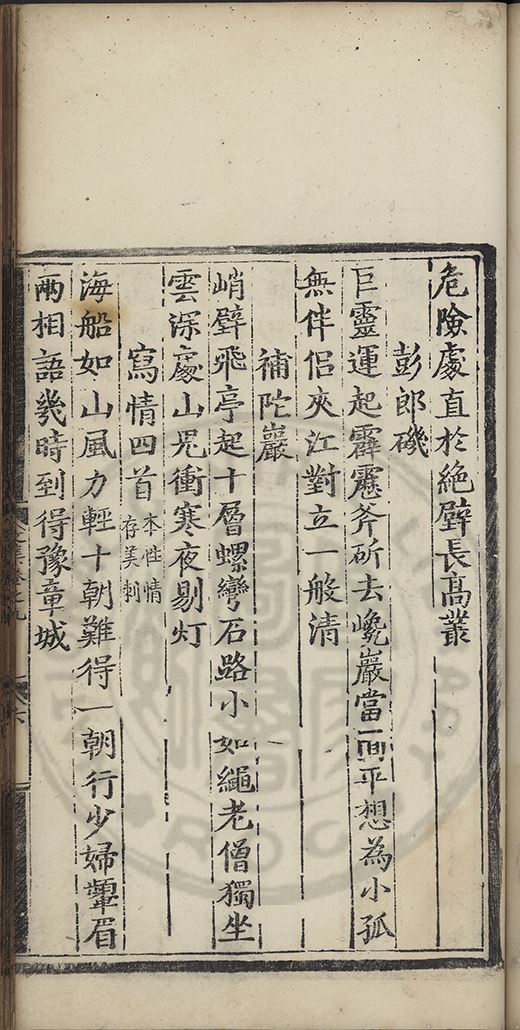 危險處直於絶壁長髙叢
彭郎磯
巨靈運起霹靂斧斫去巉巖當一面平想為小孤
無伴侶夾江對立一般清
補陀巖
峭壁飛亭起十層螺彎石路小如繩老僧獨坐
雲深處山鬼衝寒夜剔灯
寫情四首本性情存美刺
海船如山風力輕十朝難得一朝行少婦顰眉
兩相語幾時到得豫章城